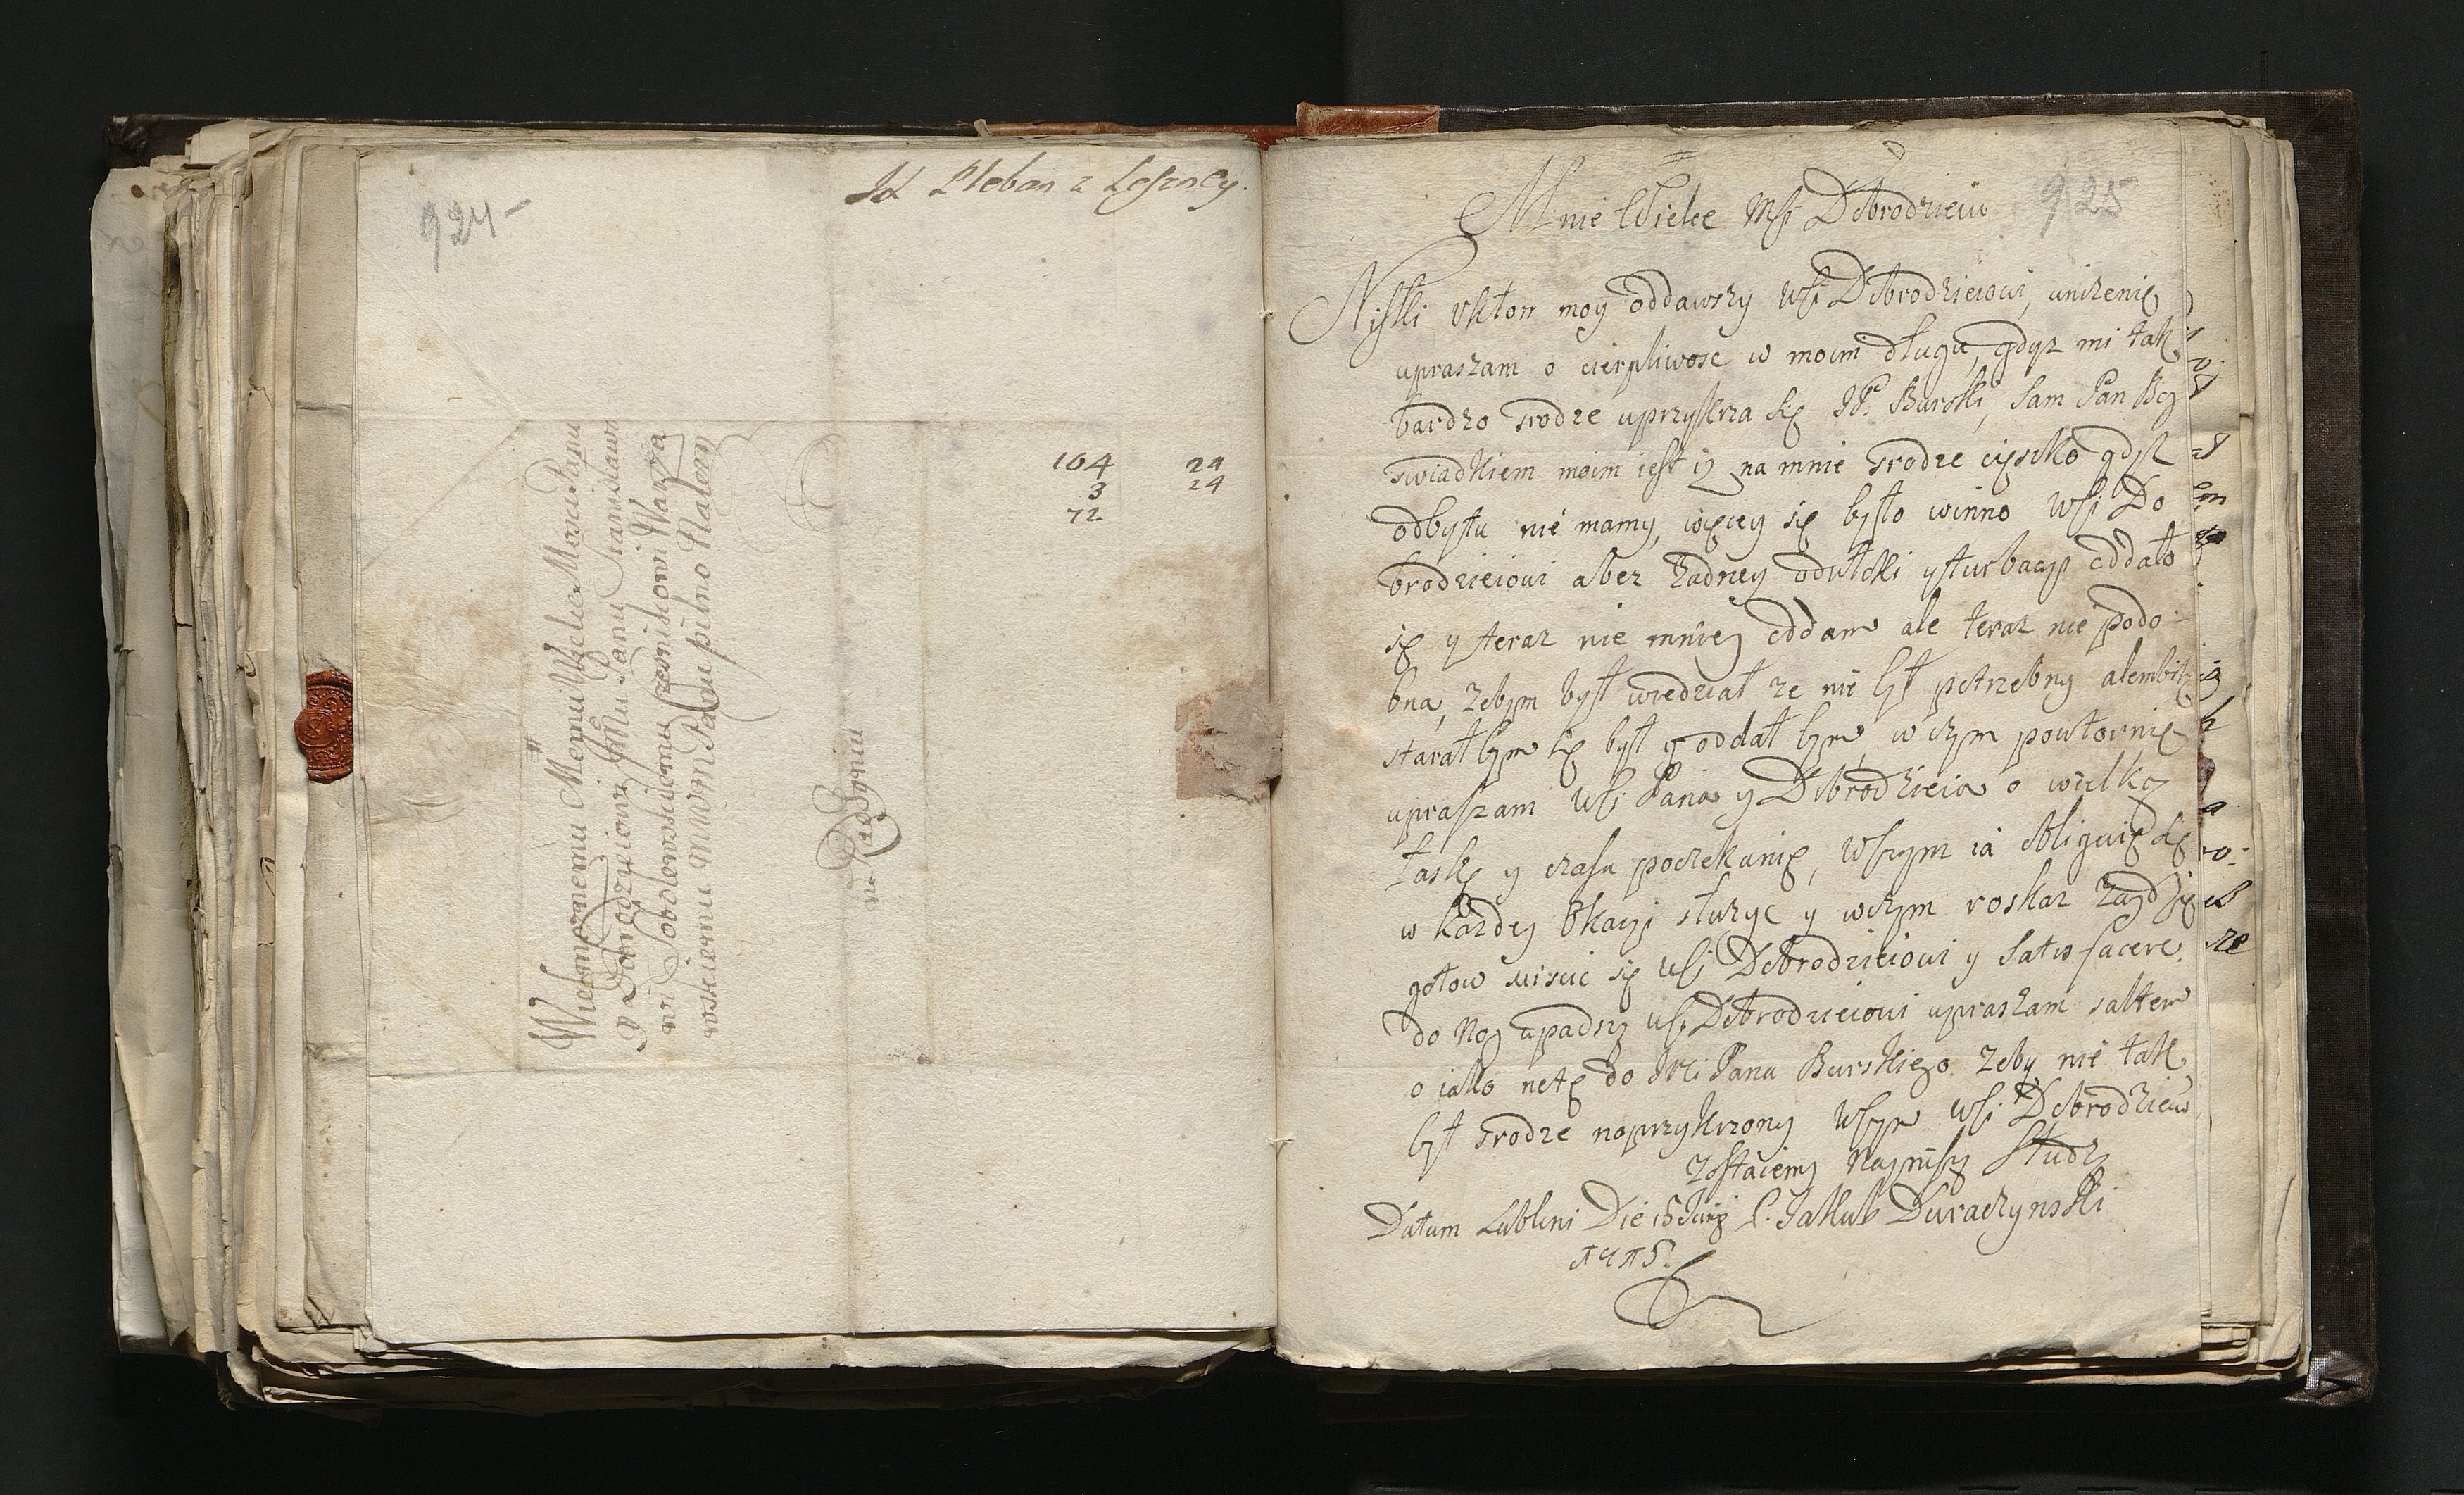 924
Jd Pleban z Leszncy.
104 24
3 24
72
Wielmoznemu Memu Wielce Mosci Panu
y Dobrodzieiowi Jmu Panu Stanisławo
wi Godlewskiemu Czesnikowi Warsza
wskiemu MMWM Panu pilno Nalezy
w Radzyniu
925
Mnie Wielce Msi Dobrodzieiu
Niski Ukłon moy oddawszy Wsi Dobrodzieiowi, unizenie
upraszam o cierpliwosc w moim długu, gdyz mi tak
bardzo srodze uprzykrza się JP. Burski, sam Pan Bog
swiadkiem moim iest iz na mnie srodze cięszko gdyz
odbytu nie mamy, więcey się było winno Wsi Do
brodzieiowi a bez zadney odwłoki y turbacyi oddało
się y teraz nie mniey oddam ale teraz nie podo-
bna, zebym był wiedział ze nie był potrzebny alembik
starałbym się był y oddałbym, w czym powtornie
upraszam Wsi Pana y Dobrodzieia o wielką
łaskę y czasu poczekanie, w czym ia obliguię się
w kazdey okacyi słuzyc y w czym roskaz zaydzie
gotow uiscic się Wsi Dobrodzieiowi y satisfacere.
do Nog upadszy Wsi Dobrodzieiowi upraszam saltem
o iako notę do JMci Pana Burskiego zeby nie tak
był srodze naprzykrzony Wszym Wsi Dobrodzieiu
Zostaiemy Naynisszy Słudzy
Datum Lublini Die 15 P. Jakub Duraczynski
1715.